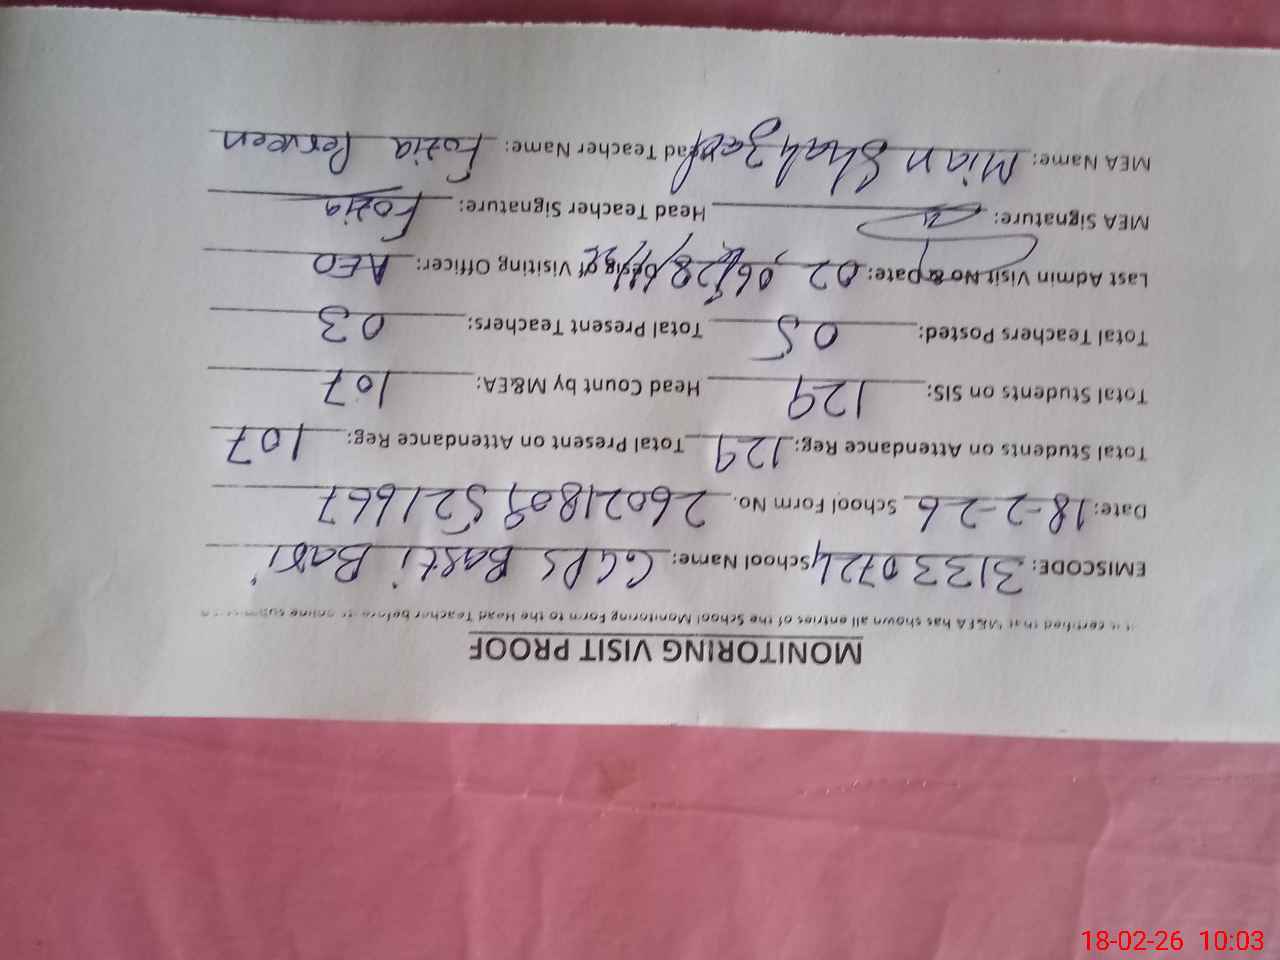 MONITORING VISIT PROOF
It is certified that M&EA has shown all entries of the School Monitoring Form to the Head Teacher before its online
EMISCODE: 31330724 School Name: GGPS Basti Bari
Date: 18-2-26 School Form No. 26021809521667
Total Students on Attendance Reg: 129 Total Present on Attendance Reg: 107
Total Students on SIS: 129 Head Count by M&EA: 107
Total Teachers Posted: 05 Total Present Teachers: 03
Last Admin Visit No & Date: 02, 06, 28 of Visiting Officer: AEO
MEA Signature: Head Teacher Signature: Fozia
MEA Name: Mian Shahzad Head Teacher Name: Fozia Perveen
18-02-26 10:03